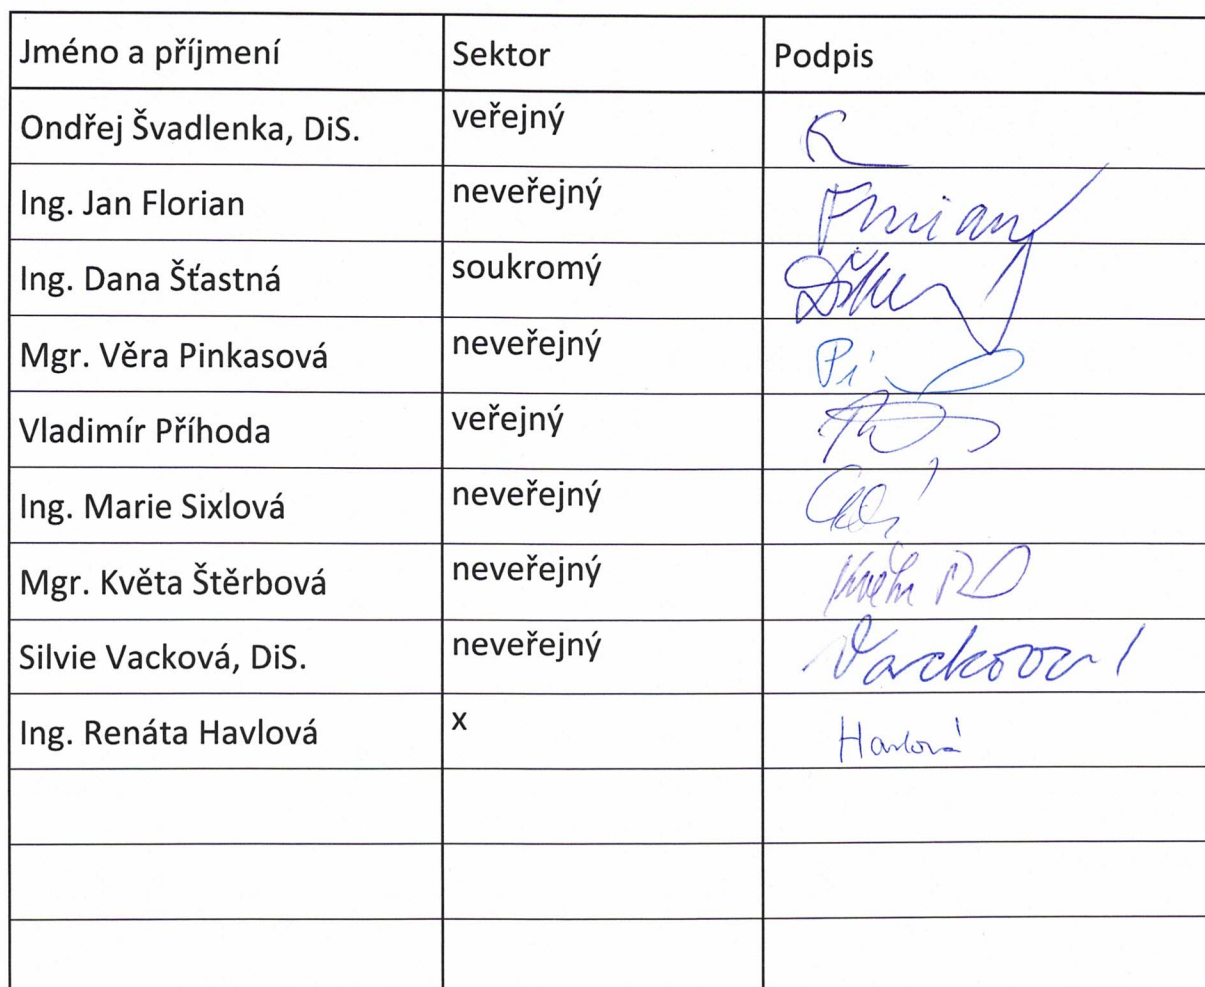 Jméno a příjmení Sektor Podpis
Ondřej Švadlenka, DiS. veřejný
Ing. Jan Florian neveřejný Florian
Ing. Dana Šťastná soukromý
Mgr. Věra Pinkasová neveřejný
Vladimír Příhoda veřejný
Ing. Marie Sixlová neveřejný
Mgr. Květa Štěrbová neveřejný
Silvie Vacková, DiS. neveřejný Vacková
Ing. Renáta Havlová x Havlová